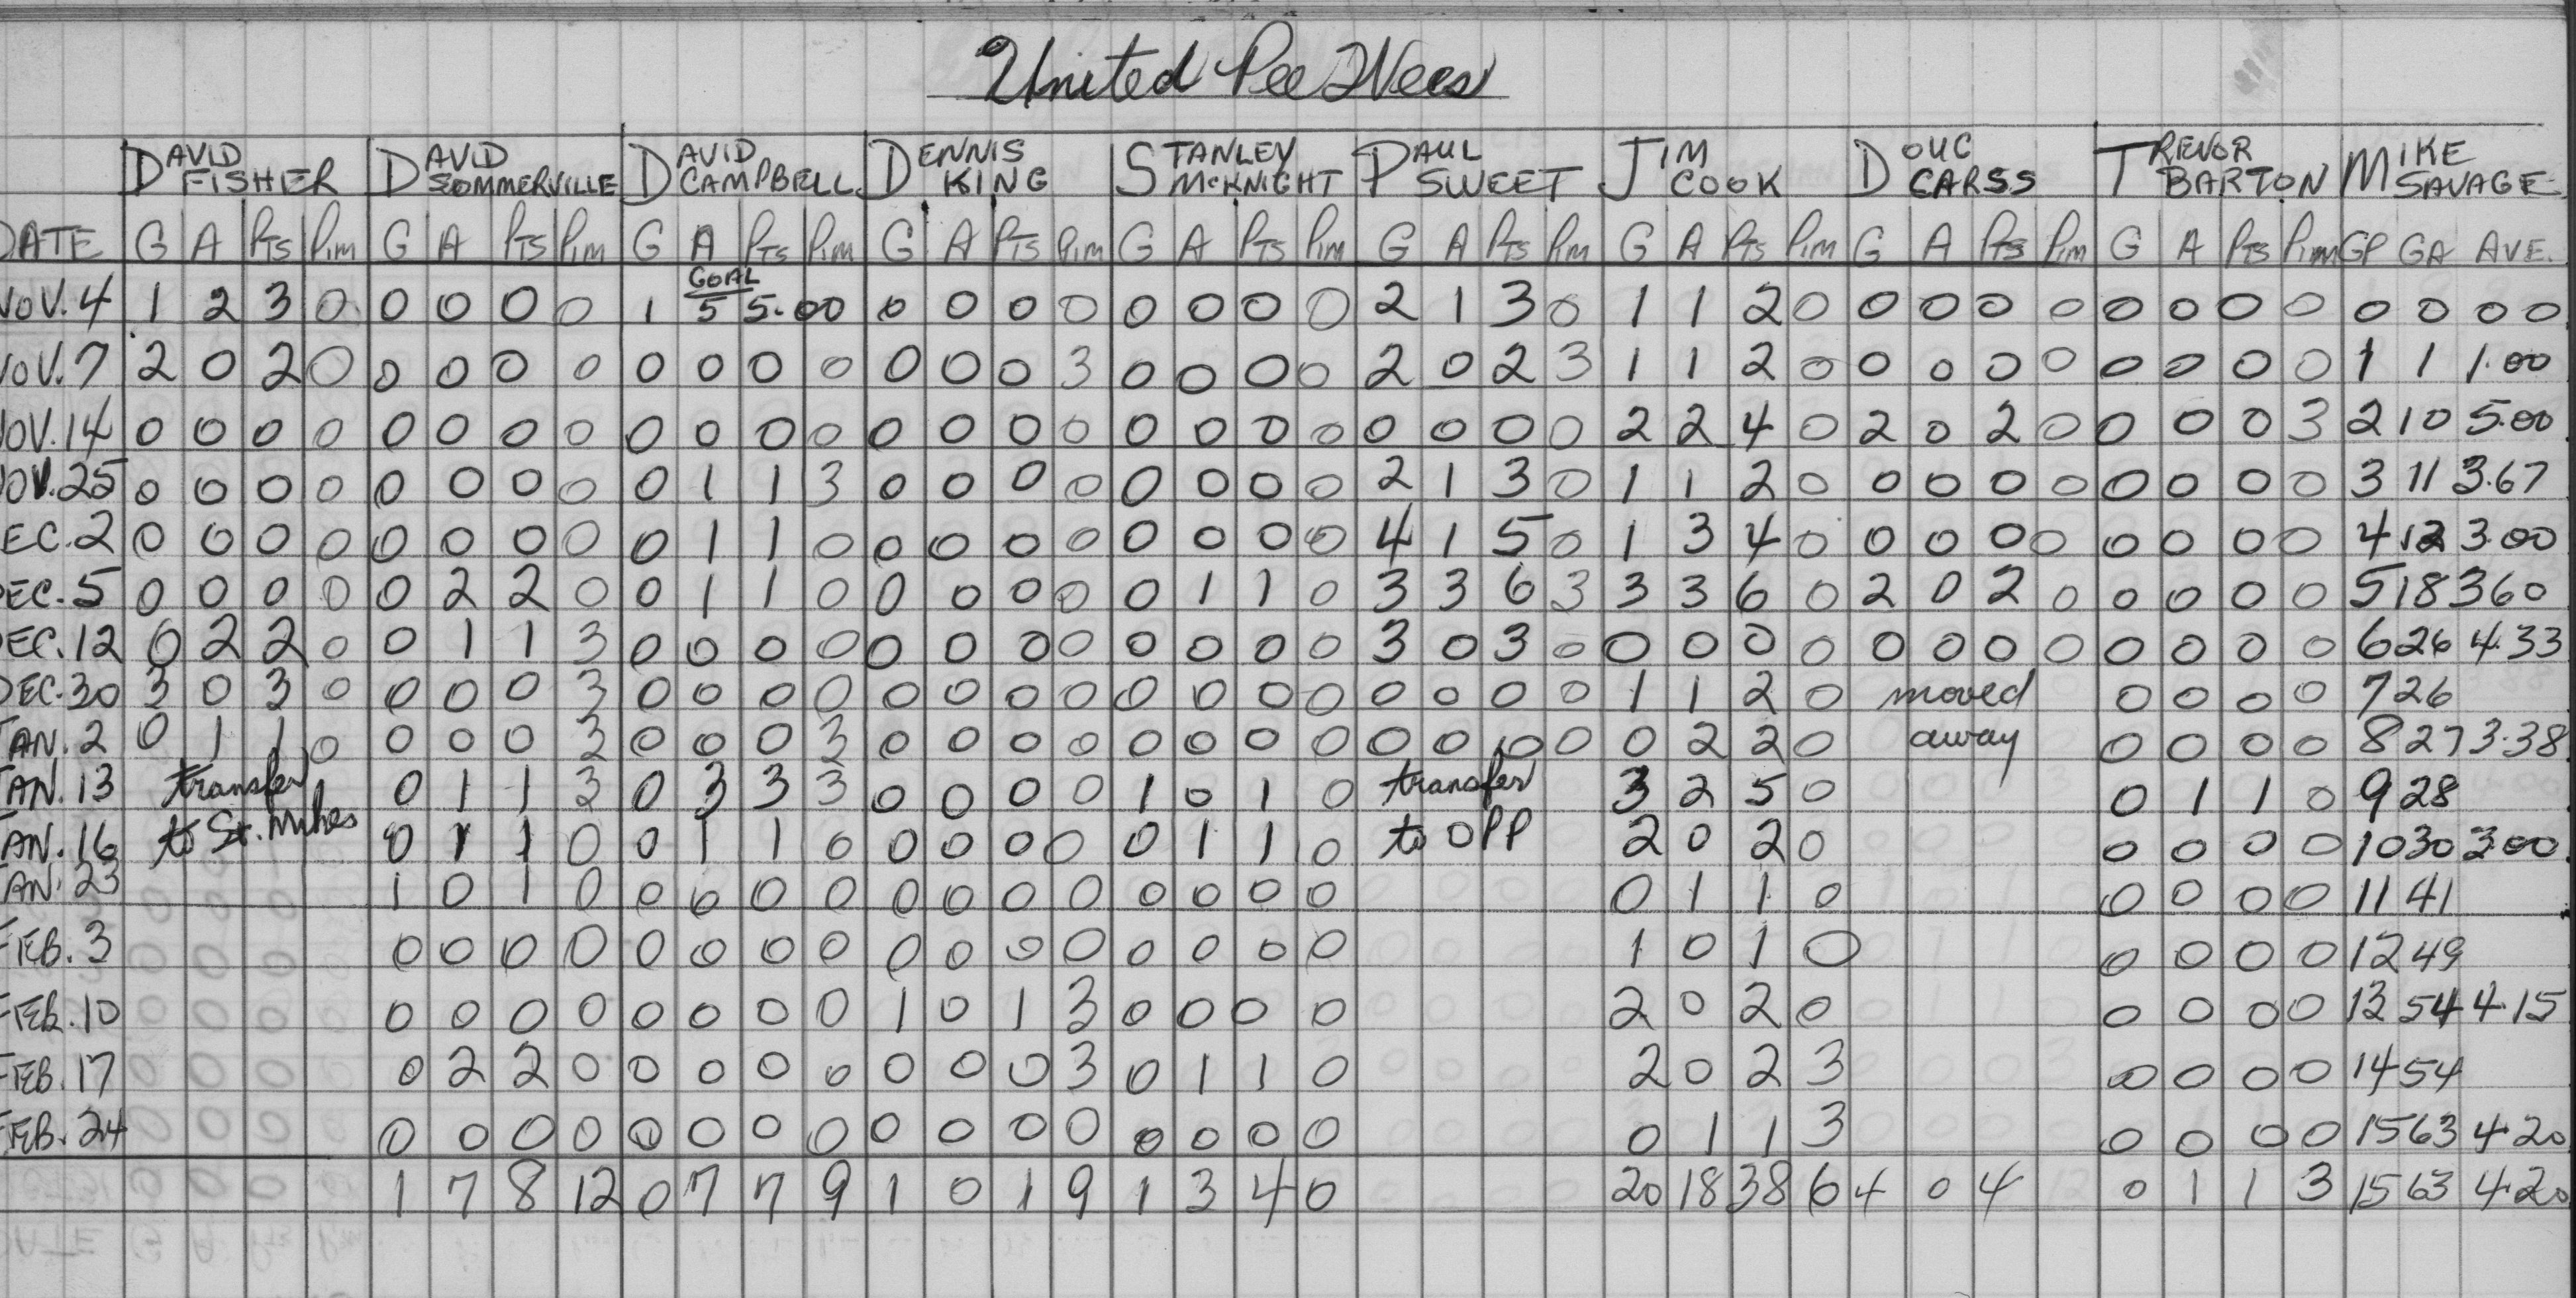 United Pee Wees
DAVID FISHER DAVID SOMMERVILLE DAVID CAMPBELL DENNIS KING STANLEY MCKNIGHT PAUL SWEET JIM COOK DOUG CARSS TREVOR BARTON MIKE SAVAGE
DATE G A PTS PIM G A PTS PIM G A PTS PIM G A PTS PIM G A PTS PIM G A PTS PIM G A PTS PIM G A PTS PIM G A PTS PIM GP GA AVE.
GOAL
NOV. 4 1 2 3 0 0 0 0 0 1 5 5.00 0 0 0 0 0 0 0 0 2 1 3 0 1 1 2 0 0 0 0 0 0 0 0 0 0 0 0 0
NOV. 7 2 0 2 0 0 0 0 0 0 0 0 0 0 0 0 3 0 0 0 0 2 0 2 3 1 1 2 0 0 0 0 0 0 0 0 0 1 1 1.00
NOV. 14 0 0 0 0 0 0 0 0 0 0 0 0 0 0 0 0 0 0 0 0 0 0 0 0 2 2 4 0 2 0 2 0 0 0 0 3 2 10 5.00
NOV. 25 0 0 0 0 0 0 0 0 0 1 1 3 0 0 0 0 0 0 0 0 2 1 3 0 1 1 2 0 0 0 0 0 0 0 0 0 3 11 3.67
EC. 2 0 0 0 0 0 0 0 0 0 1 1 0 0 0 0 0 0 0 0 0 4 1 5 0 1 3 4 0 0 0 0 0 0 0 0 0 4 12 3.00
DEC. 5 0 0 0 0 0 2 2 0 0 1 1 0 0 0 0 0 0 1 1 0 3 3 6 3 3 3 6 0 2 0 2 0 0 0 0 0 5 18 360
DEC. 12 0 2 2 0 0 1 1 3 0 0 0 0 0 0 0 0 0 0 0 0 3 0 3 0 0 0 0 0 0 0 0 0 0 0 0 0 6 26 4.33
DEC. 30 3 0 3 0 0 0 0 3 0 0 0 0 0 0 0 0 0 0 0 0 0 0 0 0 1 1 2 0 moved 0 0 0 0 7 26
JAN. 2 0 1 1 0 0 0 0 3 0 0 0 3 0 0 0 0 0 0 0 0 0 0 0 0 0 2 2 0 away 0 0 0 0 8 27 3.38
JAN. 13 transfer 0 1 1 3 0 3 3 3 0 0 0 0 1 0 1 0 transfer 3 2 5 0 0 1 1 0 9 28
JAN. 16 to St. Mikes 0 1 1 0 0 1 1 0 0 0 0 0 0 1 1 0 to OPP 2 0 2 0 0 0 0 0 10 30 3.00
JAN. 23 1 0 1 0 0 0 0 0 0 0 0 0 0 0 0 0 0 1 1 0 0 0 0 0 11 41
FEB. 3 0 0 0 0 0 0 0 0 0 0 0 0 0 0 0 0 1 0 1 0 0 0 0 0 12 49
FEB. 10 0 0 0 0 0 0 0 0 1 0 1 3 0 0 0 0 2 0 2 0 0 0 0 0 13 54 4.15
FEB. 17 0 2 2 0 0 0 0 0 0 0 0 3 0 1 1 0 2 0 2 3 0 0 0 0 14 54
FEB. 24 0 0 0 0 0 0 0 0 0 0 0 0 0 0 0 0 0 1 1 3 0 0 0 0 15 63 4.20
1 7 8 12 0 7 7 9 1 0 1 9 1 3 4 0 20 18 38 6 4 0 4 0 1 1 3 15 63 4.20